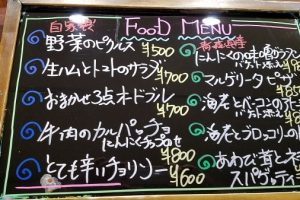 FOOD MENU
自家製
野菜のピクルス
¥500
生ハムとトマトのサラダ
¥700
おまかせ3点オードブル
¥700
牛肉のカルパッチョ
にんにくチップのせ
¥800
とても辛いチョリソー
¥600
青森県産
にんにくの
マルゲリータピザ
海老とベーコンの
海老とブロッコリーの
あわび茸と
スパゲッティ